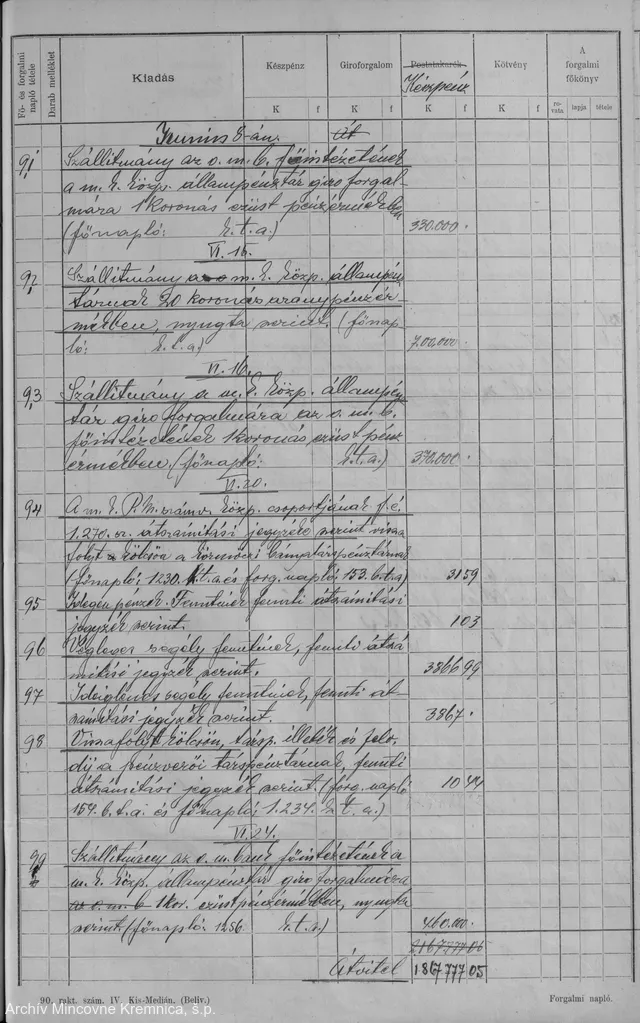 Fő- és forgalmi napló tétele
Darab melléklet
Kiadás
Készpénz
Giroforgalom
Postatakarék
Készpénz
Kötvény
A forgalmi főkönyv
K f K f K f K f rovata lapja tétele
Junius 8-án. Át
91 Szállitmány az o. m. b. főintézetének
a m. k. közp. állampénztár giro forgal-
mára 1 koronás ezüst pénzérmékben
(főnapló: k. t. a.) 330.000 .
VI. 15.
92 Szállitmány a m. k. közp. állampénz
tárnak 20 koronás aranypénzér
mékben, nyugta szerint. (főnap
ló: k. t. a) 700.000 .
VI. 16.
93 Szállitmány a m. k. közp. állampénz
tár giro forgalmára az o. m. b.
főintézetének 1 koronás ezüst pénz
érmékben (főnapló: k. t. a.) 370.000 .
VI. 20.
94 A m. k. P. M. számv. közp. csoportjának f. é.
1.270. sz. átszámitási jegyzék szerint vissza
folyt kölcsön a körmöci bányatárspénztárnak
(főnapló: 1230. k. t. a és forg. napló: 153. b. t. a) 31 59
95 Idegen pénzek. Fenntinek fennti átszámitási
jegyzék szerint. 1 03
96 Végleges segély fenntinek, fennti átszá
mitási jegyzék szerint. 3866 99
97 Ideiglenes segély fenntinek, fennti át-
számitási jegyzék szerint. 3867 .
98 Visszafolyt kölcsön, társp. illeték és felv.
dij a pénzverői társpénztárnak, fennti
átszámitási jegyzék szerint. (forg. napló 10 44
154. b. t. a. és főnapló: 1.234. k. t. a.)
VI. 24.
99 Szállitmány az o. m. bank főintézetének a
m. k. közp. állampénztár giro forgalmára
az o. m. b 1 kor. ezüst pénzérmékben, nyugta
szerint (főnapló: 1256. k. t. a) 460.000 .
2167777 05
Átvitel 1867777 05
90. rakt. szám. IV. Kis-Medián. (Beliv.)
Forgalmi napló.
Archív Mincovne Kremnica, š.p.